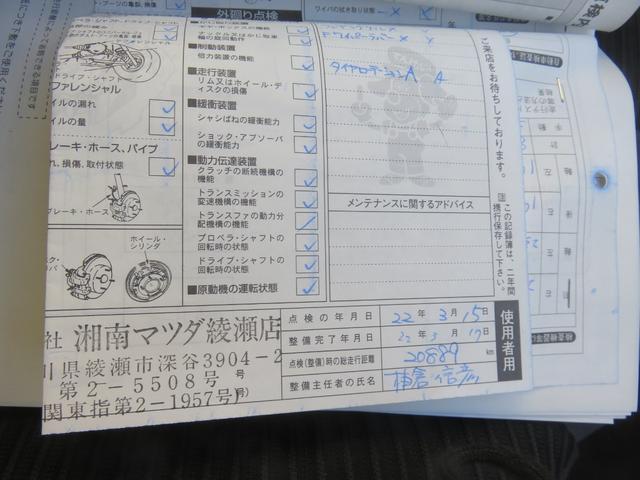 外廻り点検
ワイパの拭き取り状態
ナックル又はかじ取車
輪の取付動作
制動装置
倍力装置の機能
走行装置
リム又はホイール・デ
ィスクの損傷
緩衝装置
シャシばねの緩衝能力
ショック・アブソーバ
の緩衝能力
動力伝達装置
クラッチの断続機構の
機能
トランスミッションの
変速機構の機能
トランスファの動力分
配機構の機能
プロペラ・シャフトの
回転時の状態
ドライブ・シャフトの
回転時の状態
原動機の運転状態
ドライブ・シャフト
ファレンシャル
イルの漏れ
イルの量
レーキ・ホース、パイプ
れ、損傷、取付状態
ブレーキ・ホース
ホイール・
シリンダ
タイヤローテーション A A
ご来店をお待ちしております。
メンテナンスに関するアドバイス
この記録簿は、二年間
携行保存して下さい。
社 湘南マツダ綾瀬店
川県綾瀬市深谷3904-2
第2-5508号
関東指第2-1957号
点検の年月日 22年 3月 15日
整備完了年月日 22年 3月 17日
点検(整備)時の総走行距離 20889 km
整備主任者の氏名
使用者用